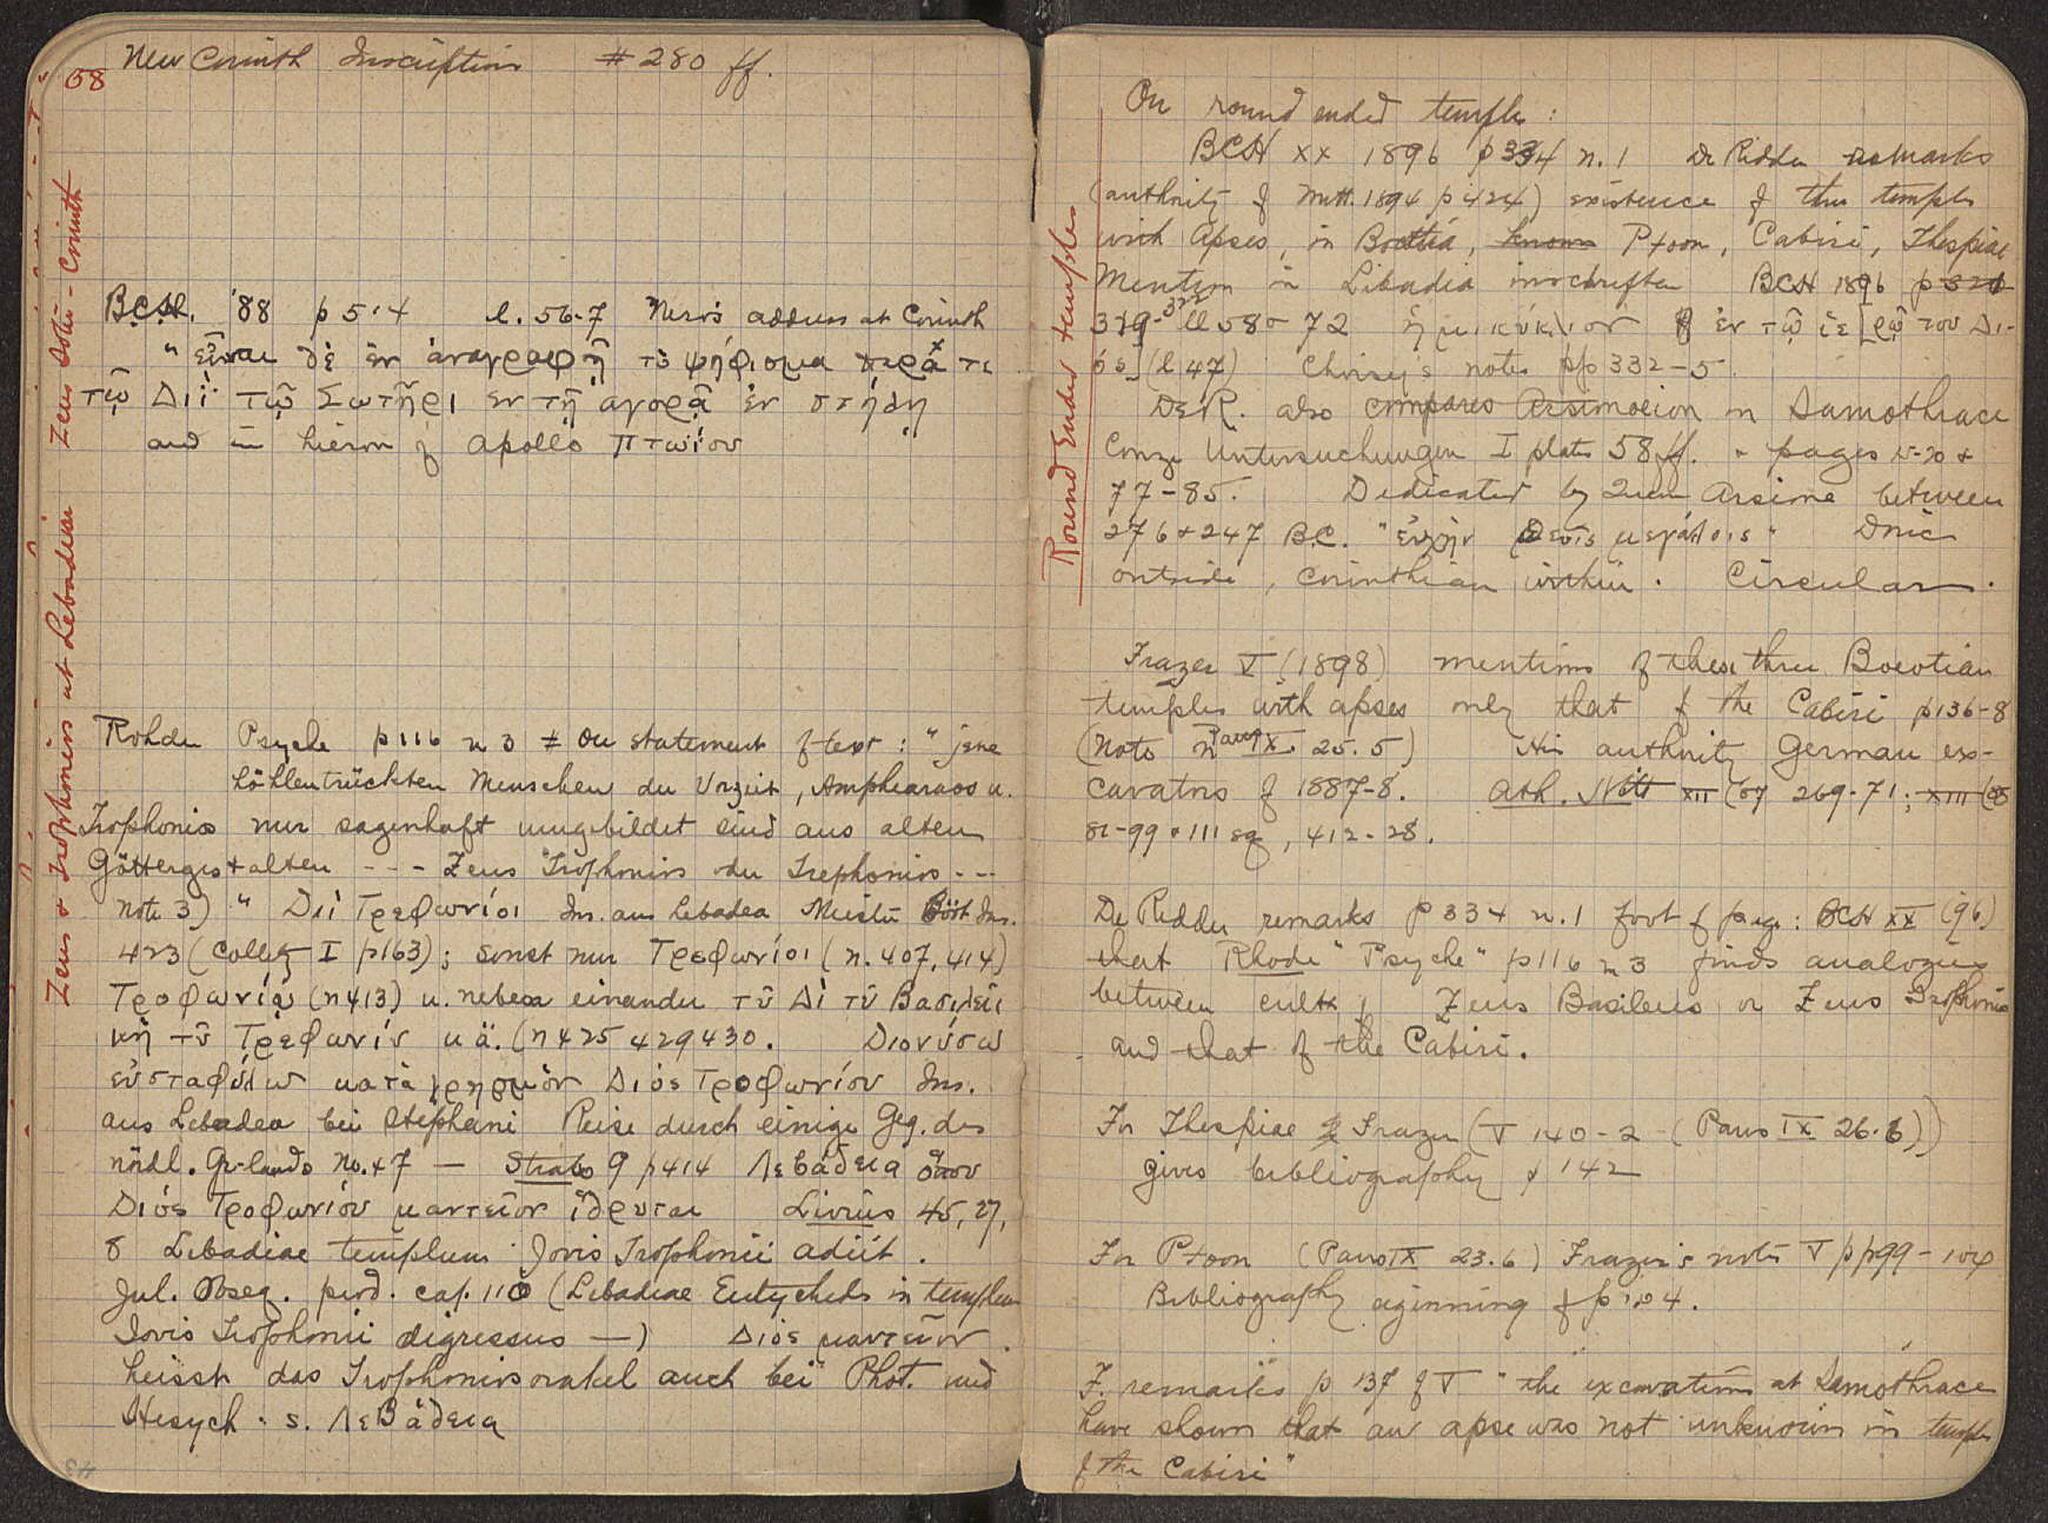 58 New Corinth Inscriptions # 280 ff.
Zeus Soter - Corinth
Zeus & Trophonios at Lebadeia
B.C.H. '88 p 514 l. 56-7 Nero's address at Corinth
" εἶναι δὲ ἐν ἀναγραφῇ τὸ ψήφισμα παρά τε
τῷ Διὶ τῷ Σωτῆρι ἐν τῇ ἀγορᾷ ἐν στήλῃ
and in hieron of Apollo Πτωίου
Rohde Psyche p116 n 3 ≠ On statement of text : " jene
höhlentrückten Menschen der Vorzeit, Amphiaraos u.
Trophonios nur sagenhaft umgebildet sind aus alten
Göttergestalten - - - Zeus Trophonios oder Trephonios - - -
note 3) " Διὶ Τρεφωνίοι Ins. aus Lebadea Meister Böot Ins.
423 (Collitz I p163); sonst nur Τρεφωνίοι (n. 407, 414)
Τροφωνίῳ (n413) u. neben einander τῦ Δὶ τῦ Βασιλεῖι
κὴ τῦ Τρεφωνίυ u ä. (n 425 429 430. Διονύσω
εὐσταφύλω κατὰ χρησμὸν Διὸς Τροφωνίου Ins.
aus Lebadea bei Stephani Reise durch einige Geg. des
nördl. Gr-lands No. 47 — Strabo 9 p414 Λεβάδεια ὅπου
Διὸς Τροφωνίου μαντεῖον ἵδρυται Livius 45, 27,
8 Lebadiae templum Jovis Trophonii adiit.
Jul. Obseq. prod. cap. 110 (Lebadiae Eutychides in templum
Iovis Trophonii digressus —) Διὸς μαντεῖον
heisst das Trophoniosorakel auch bei Phot. und
Hesych. s. Λεβάδεια
43
Round Ended temples
On round ended temples :
BCH XX 1896 p334 n. 1 De Ridder remarks
(authority of Mitt. 1894 p 424) existence of three temples
with Apses, in Boeotia, known Ptoon, Cabiri, Thespiae
Mention in Libadia inschriften BCH 1896 p 320
319-322 ll 58-72 ἡμικύκλιον ἐν τῷ ἱε[ρῷ του Δι-
ός] (l 47) Choisy's notes pp 332-5.
De R. also compares Arsinoeion in Samothrace
Conze Untersuchungen I plate 58 ff. & pages 15-20 &
77-85. Dedicated by Queen Arsinoe between
276 & 247 B.C. "εὐχὴν θεοῖς μεγάλοις" Doric
outside, Corinthian within. Circular.
Frazer V (1898) mentions of these three Boeotian
temples with apses only that of the Cabiri p136-8
(note on Paus IX. 25. 5) His authority German ex-
cavators of 1887-8. Ath. Mitt XII (87 269-71; XIII (88
81-99 & 111 sq, 412-28.
De Ridder remarks p 334 n. 1 foot of page : BCH XX (96)
that Rhode "Psyche" p116 n 3 finds analogies
between cults of Zeus Basileus or Zeus Trophonios
and that of the Cabiri.
For Thespiae Frazer (V 140-2 (Paus IX 26.6))
gives bibliography p 142
For Ptoon (Paus IX 23.6) Frazer's notes V pp99-
Bibliography beginning of p 104.
F. remarks p 137 of V "the excavations at Samothrace
have shown that an apse was not unknown in temples
of the Cabiri"